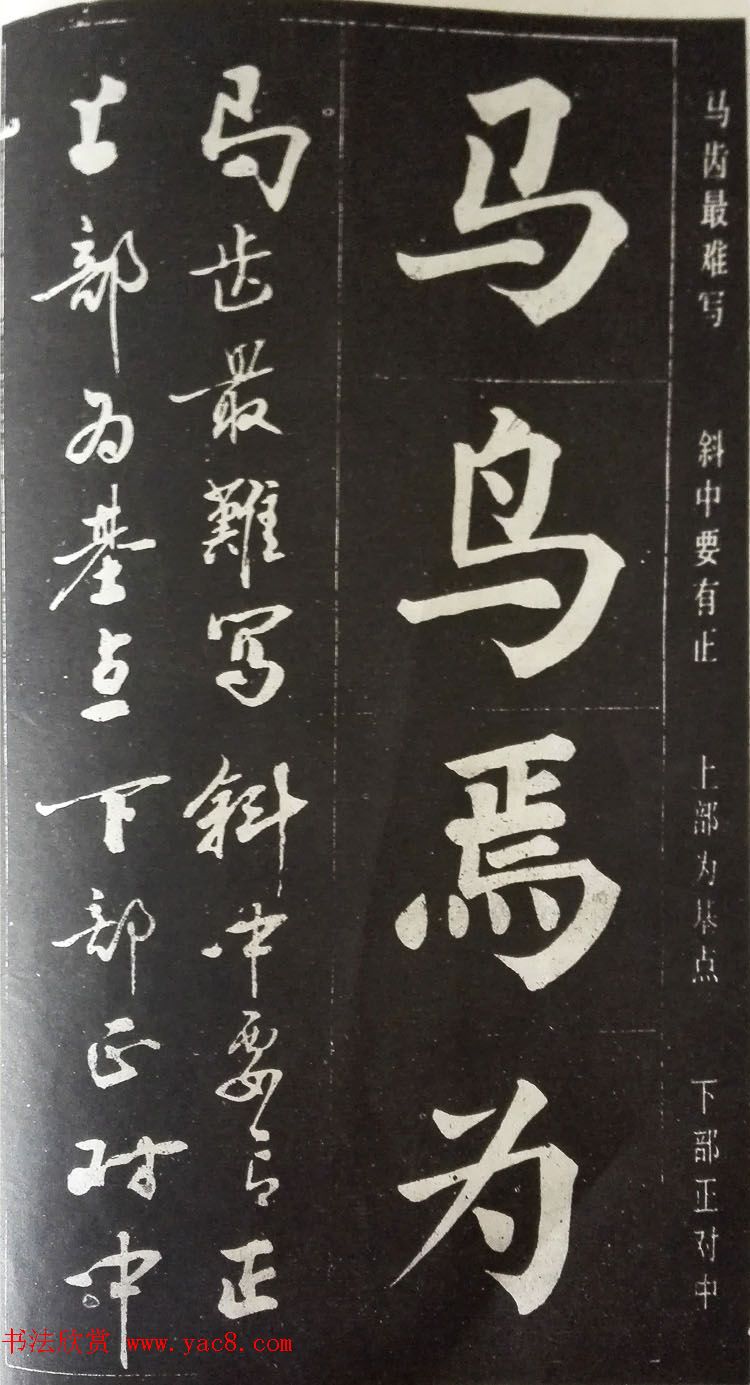 马齿最难写 斜中要有正 上部为基点 下部正对中
马鸟焉为
马齿最難写斜中要有正
上部为基点下部正对中
书法欣赏 www.yac8.com